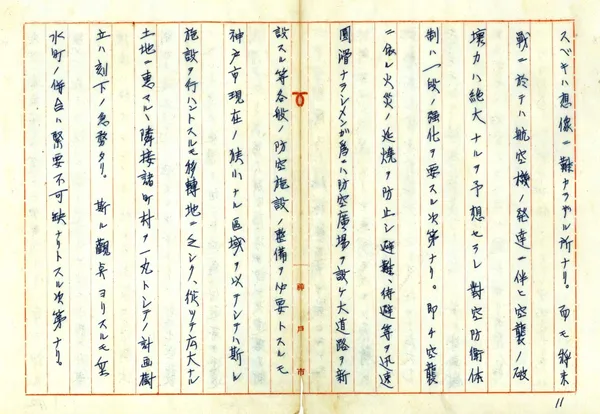 スベキハ想像ニ難カラザル所ナリ。而モ将来
戦ニ於テハ航空機ノ発達ニ伴ヒ空襲ノ破
壊力ハ絶大ナルヲ予想セラレ対空防衛体
制ハ一段ノ強化ヲ要スル次第ナリ。即チ空襲
ニ依ル火災ノ延焼ヲ防止シ避難、待避等ヲ迅速
圓滑ナラシメンガ為ニハ防空廣場ヲ設ケ大道路ヲ新
設スル等各般ノ防空施設ノ整備ヲ必要トスルモ
神戸市
神戸市現在ノ狭小ナル区域ヲ以テシテハ斯ル
施設ヲ行ハントスルモ移轉地ニ乏シク、従ツテ広大ナル
土地ニ恵マルヽ隣接諸町村ヲ一丸トシテノ計画樹
立ハ刻下ノ急務タリ。斯ル觀点ヨリスルモ魚
水町ノ併合ハ緊要不可缺ナリトスル次第ナリ。
11